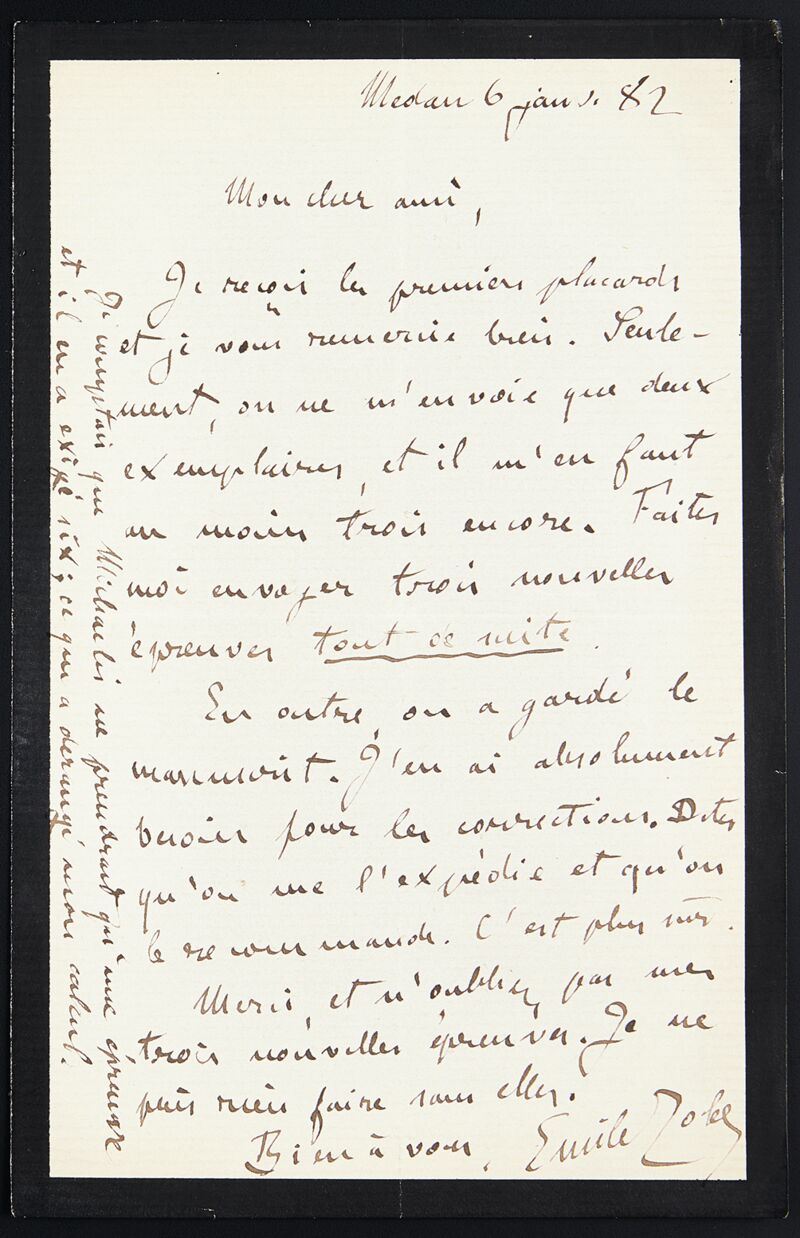 Medan 6 janv. 82
Mon cher ami,
Je reçois les premiers placards
et je vous remercie bien. Seule-
ment, on ne m'envoie que deux
exemplaires, et il m'en faut
au moins trois encore. Faites
moi envoyer trois nouvelles
épreuves tout de suite.
En outre, on a gardé le
manuscrit. J'en ai absolument
besoin pour les corrections. Dites
qu'on me l'expédie et qu'on
le recommande. C'est plus sûr.
Merci, et n'oubliez pas mes
trois nouvelles épreuves. Je ne
puis rien faire sans elles.
Bien à vous,
Emile Zola
Je comptais que Michaelis ne prendrait qu'une épreuve
et il en a exigé six; ce qui a dérangé mon calcul.